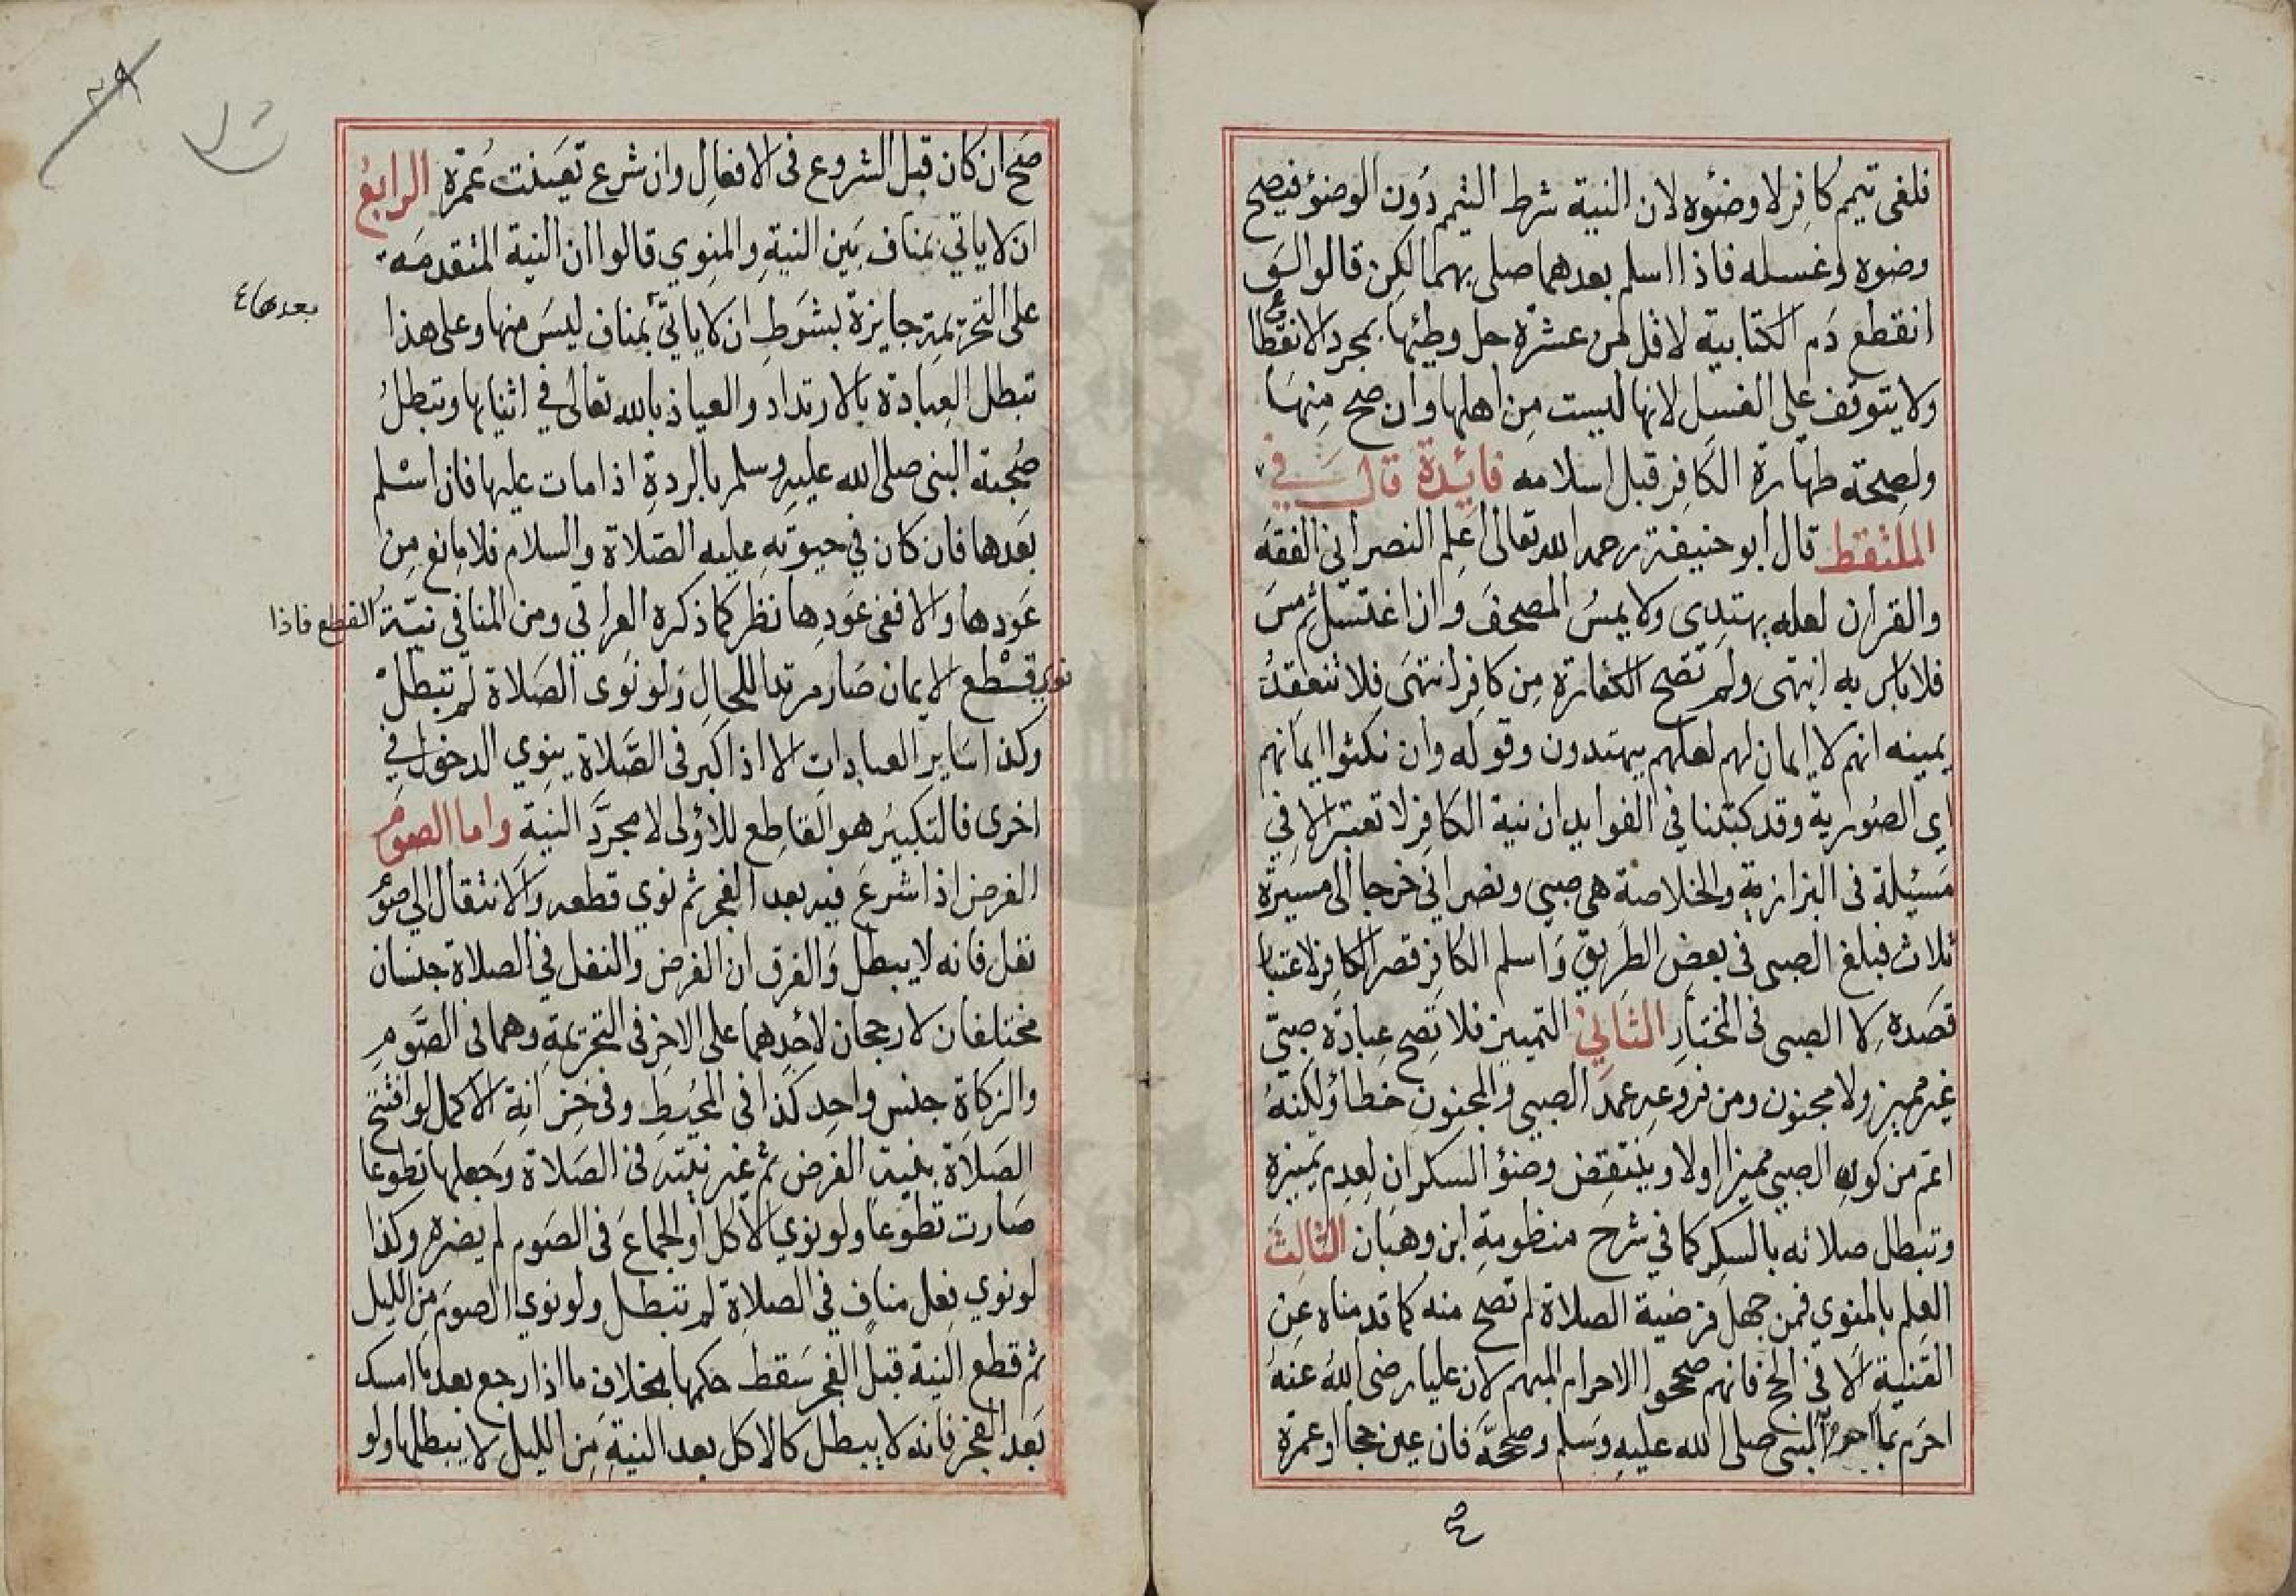 فلغى تيمم كافر لا وضوئه لان النية شرط التيمم دون الوضوء فيصح
وضوه وغسله فاذا اسلم بعدهما صلى بهما لكن قالوا
انقطع دم الكتابية لاقل من عشرة حل وطئها بمجرد الانقطاع
ولا يتوقف على الغسل لانها ليست من اهلها وان صح منها
ولصحة طهارة الكافر قبل اسلامه فائدة قال في
الملتقط قال ابو حنيفة رحمه الله تعالى اعلم النصراني الفقه
والقران لعله يهتدى ولا يمس المصحف واذا اغتسل ثم مس
فلا باس به انتهى ولم تصح الكفارة من كافر انتهى فلا تنعقد
يمينه انهم لا ايمان لهم لعلهم يهتدون وقوله وان نكثوا ايمانهم
اى الصورية وقد كتبنا في الفوايد ان نية الكافر لا تعتبر الا في
مسيلة فى البزازية والخلاصة هى صبي ونصراني خرجا الى مسيرة
ثلاث فبلغ الصبى فى بعض الطريق واسلم الكافر قصر الكافر لاعتبا
قصده لا الصبى فى المختار الثاني التمييز فلا تصح عبادة صبي
غير مميز ولا مجنون ومن فروعه عمد الصبي والمجنون خطاؤ لكنه
اعم من كون الصبي مميزا اولا وينتقض وضوء السكران لعدم تميزه
وتبطل صلاته بالسكر كما في شرح منظومة ابن وهبان الثالث
العلم بالمنوي فمن جهل فرضية الصلاة لم تصح منه كما قدمناه عن
القنية الا فى الحج فانهم صححوا الاحرام المبهم لان عليا رضى الله عنه
احرم بما احرم به النبى صلى الله عليه وسلم وصححه فان عين حجا او عمرة
صح ان كان قبل الشروع فى الافعال وان شرع تعينت عمرة الرابع
ان لا ياتي بمناف بين النية والمنوي قالوا ان النية المتقدمة
على التحريمة جايزة بشرط ان لا ياتي بمناف ليس منها وعلى هذا
بعدها ٤
تبطل العبادة بالارتداد والعياذ بالله تعالى في اثنايها وتبطل
صحبته النبى صلى الله عليه وسلم بالردة اذا مات عليها فان اسلم
بعدها فان كان في حيوته عليه الصلاة والسلام فلا مانع من
عودها والا ففى عودها نظر كما ذكره العراقي ومن المنافي نية القطع فاذا
نوى قطع الايمان صار مرتدا للحال ولو نوى الصلاة لم تبطل
وكذا ساير العبادات الا اذا كبر فى الصلاة ينوي الدخول في
اخرى فالتكبير هو القاطع للاولى لا مجرد النية واما الصوم
الفرض اذا شرع فيه بعد الفجر ثم نوي قطعه والانتقال الي صوم
نفل فانه لا يبطل والفرق ان الفرض والنفل في الصلاة جنسان
مختلفان لا رجحان لاحدهما على الاخر فى التحريمة وهما فى الصوم
والزكاة جنس واحد كذا فى المحيط وفى خزانة الاكمل لو افتتح
الصلاة بنية الفرض ثم غير نيته فى الصلاة وجعلها تطوعا
صارت تطوعا ولو نوي الاكل او الجماع فى الصوم لم يضره وكذا
لو نوي فعل مناف في الصلاة لم تبطل ولو نوي الصوم من الليل
ثم قطع النية قبل الفجر سقط حكمها بخلاف ما اذا رجع بعد ما امسك
بعد الفجر فانه لا يبطل كالاكل بعد النية من الليل لا يبطلها ولو